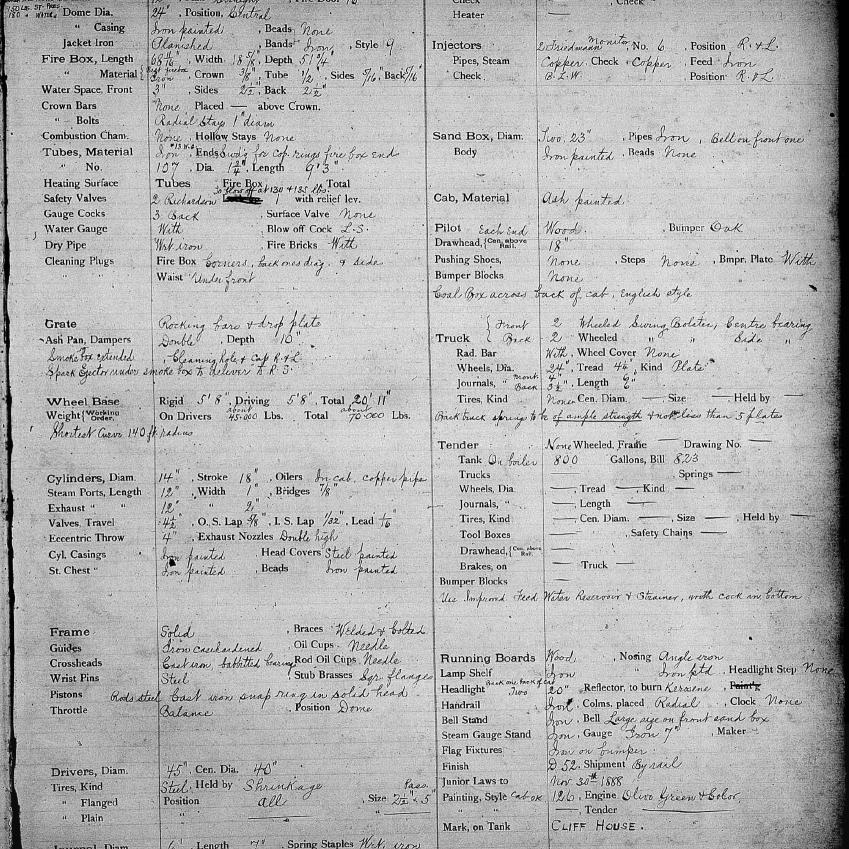 Dome Dia. 24" , Position, Central
" Casing Iron painted , Beads None
Jacket Iron Planished , Bands Iron , Style 9
Fire Box, Length , Width 18 5/8 , Depth 51 3/4
" Material Iron , Crown 3/8" Tube 1/2" , Sides 5/16" , Back 5/16"
Water Space, Front 3" , Sides 2 1/2" , Back 2 1/2"
Crown Bars None , Placed — above Crown.
" Bolts Radial Stays 1" diam
Combustion Cham. None , Hollow Stays None
Tubes, Material Iron #13 W.G. , Ends Swd'g for cop. rings fire box end
" No. 107 , Dia. 1 3/4" , Length 9' 3"
Heating Surface Tubes Fire Box Total
To blow off at 130 & 135 lbs.
Safety Valves 2 Richardson 1 with relief lev.
Gauge Cocks 3 Back , Surface Valve None
Water Gauge With , Blow off Cock L.S.
Dry Pipe Wrt iron , Fire Bricks With
Cleaning Plugs Fire Box Corners, back ones diag. & side
" " Waist Under front
Grate Rocking bars & drop plate
Ash Pan, Dampers Double , Depth 10"
Smoke box extended , Cleaning hole & cap R & L
Spark Ejector under smoke box to deliver to R. S.
Wheel Base Rigid 5' 8" , Driving 5' 8" , Total 20' 11"
Weight { Working Order, On Drivers about 45.000 Lbs. Total about 70.000 Lbs.
Shortest Curve 140 ft. radius
Cylinders, Diam. 14" , Stroke 18" , Oilers In cab, copper pipe
Steam Ports, Length 12" , Width 1" , Bridges 7/8"
Exhaust " " 12" " 2"
Valves, Travel 4 1/2 , O. S. Lap 5/8" , I. S. Lap 1/32" , Lead 1/16"
Eccentric Throw 4" , Exhaust Nozzles Double high
Cyl. Casings Iron painted , Head Covers Steel painted
St. Chest " Iron painted , Beads Iron painted
Frame Solid , Braces Welded & bolted
Guides Iron casehardened , Oil Cups Needle
Crossheads Cast iron, babbitted bearing , Rod Oil Cups Needle
Wrist Pins Steel , Stub Brasses Sqr. flanges
Pistons Rods steel Cast iron snap ring in solid head
Throttle Balance , Position Dome
Drivers, Diam. 45" , Cen. Dia. 40"
Tires, Kind Steel , Held by Shrinkage Pass.
" Flanged Position All , Size 2 1/2" x 5"
" Plain " — , " —
Length 7" , Spring Staples Wrt. iron
Check Check
Heater —
Injectors 2 Friedmann Monitor No. 6 , Position R. & L.
Pipes, Steam Copper , Check Copper , Feed Iron
Check B. L. W. Position R. & L.
Sand Box, Diam. Two, 23" , Pipes Iron , Bell on front one
Body Iron painted , Beads None
Cab, Material Ash painted
Pilot Each End Wood , Bumper Oak
Drawhead, { Cen. above Rail. 18"
Pushing Shoes, None , Steps None , Bmpr. Plate With
Bumper Blocks None
Coal Box across back of cab, English style
Truck { Front 2 Wheeled Swing Bolster, Centre bearing
Back 2 Wheeled " " Side "
Rad. Bar With , Wheel Cover None
Wheels, Dia. 24" , Tread , Kind Plate
Journals, " , Length
Tires, Kind None Cen. Diam. — , Size — Held by
Back truck springs to be of ample strength & not less than 5 plates
Tender None Wheeled, Frame — Drawing No. —
Tank On boiler 800 Gallons, Bill 823
Trucks — , Springs —
Wheels, Dia. — , Tread — , Kind —
Journals, " — , Length —
Tires, Kind — , Cen. Diam. — , Size — , Held by —
Tool Boxes — , Safety Chains —
Drawhead, { Cen. above Rail. —
Brakes, on — Truck —
Bumper Blocks —
Use Improved Feed Water Reservoir & Strainer, with cock in bottom
Running Boards Wood , Nosing Angle iron
Lamp Shelf Iron , " Iron ptd , Headlight Step None
Headlight Two 20" , Reflector, to burn Kerosene , Paint'g
Handrail Iron , Colms. placed Radial , Clock None
Bell Stand Iron , Bell Large size on front sand box
Steam Gauge Stand Iron , Gauge Iron 7" , Maker —
Flag Fixtures Iron on bumper
Finish D 52 , Shipment By rail
Junior Laws to Nov 30th 1888
Painting, Style Cab ok 126 , Engine Olive Green & Color
" " — , Tender —
Mark, on Tank CLIFF HOUSE.